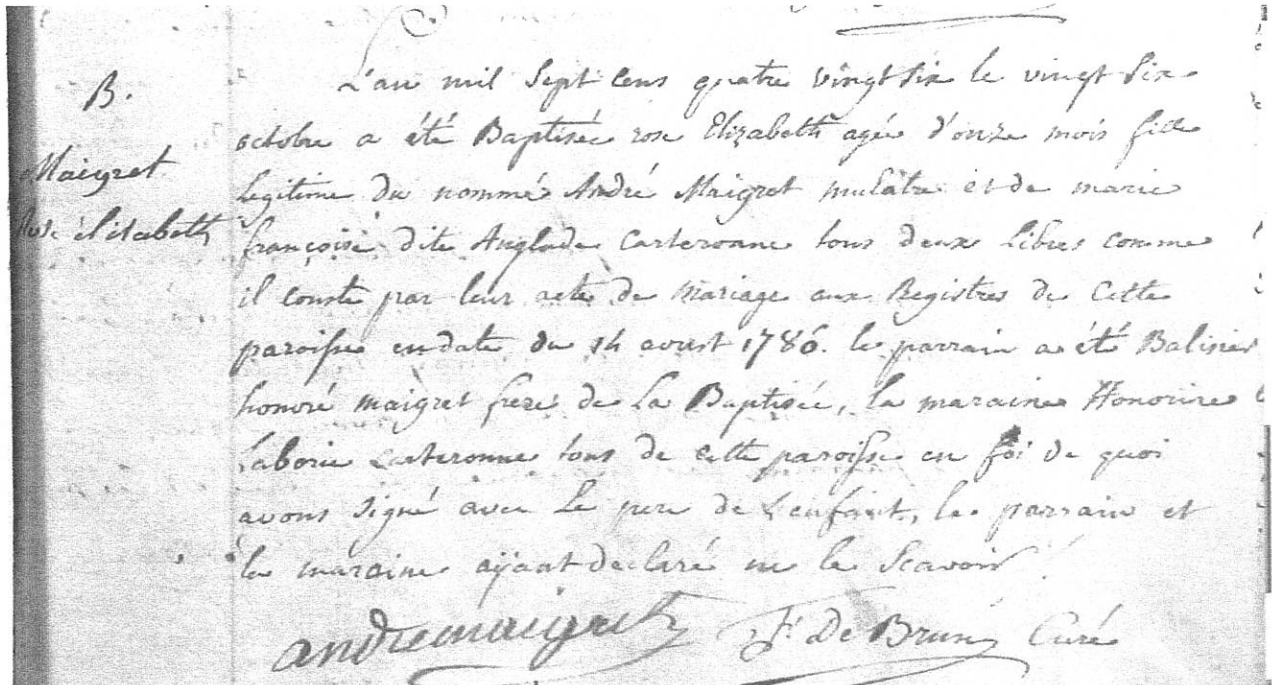 B.
Maigret
Rose élisabeth
L'an mil Sept Cens quatre vingt six le vingt six
octobre a été Baptisée rose Elizabeth agée d'onze mois fille
legitime du nommé André Maigret mulâtre et de marie
françoise dite Anglade Carteronne tous deux Libres comme
il conste par leur acte de Mariage aux Registres de Cette
paroisse en date du 14 aoust 1786. le parrain a été Balinier
honoré maigret frere de La Baptisée, la maraine Honorine
Laborie Carteronne tous de cette paroisse en foi de quoi
avons signé avec Le pere de L'enfant, le parrain et
la maraine ayant declaré ne le Scavoir.
andremaigret De Brun Curé